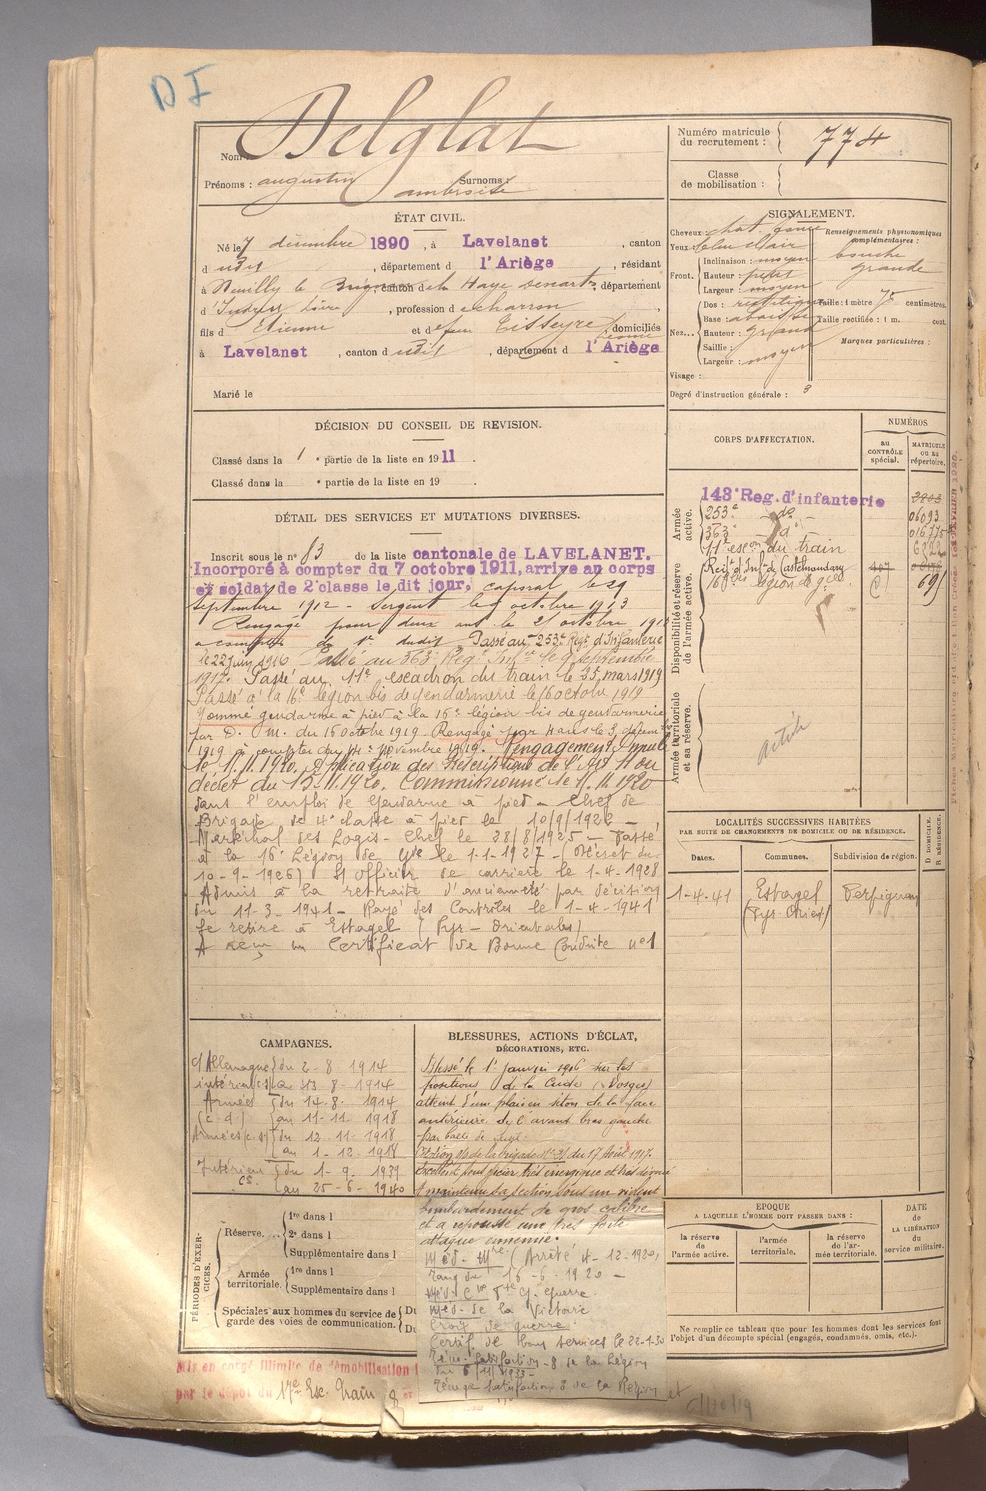 DI
Nom : Delglat
Prénoms : augustin ambroise Surnoms :
Numéro matricule du recrutement : 774
Classe de mobilisation :
ÉTAT CIVIL.
Né le 7 décembre 1890, à Lavelanet, canton
d udit, département d l'Ariège, résidant
à Neuilly le Brignon, canton de la Haye Descartes, département
d'Indre & Loire, profession de charron
fils d Etienne et de feu Tisseyre Léonie, domiciliés
à Lavelanet, canton d udit, département d l'Ariège
Marié le
SIGNALEMENT.
Cheveux chat. foncé
Yeux bleu clair
Front. Inclinaison : moyen
Hauteur : petit
Largeur : moyen
Nez... Dos : rectiligne
Base : abaissé
Hauteur : grand
Saillie :
Largeur : moyen
Visage :
Degré d'instruction générale : 3
Renseignements physionomiques complémentaires :
bouche
grande
Taille : 1 mètre centimètres.
Taille rectifiée : 1 m. cent.
Marques particulières :
DÉCISION DU CONSEIL DE REVISION.
Classé dans la 1e partie de la liste en 1911.
Classé dans la e partie de la liste en 19 .
DÉTAIL DES SERVICES ET MUTATIONS DIVERSES.
Inscrit sous le n° 83 de la liste cantonale de LAVELANET.
Incorporé à compter du 7 octobre 1911, arrive au corps
et soldat de 2e classe le dit jour, caporal le 29
septembre 1912 - Sergent le octobre 1913
Rengagé pour deux ans le 21 octobre 191
à compter du 1er dudit Passé au 253e Regt d'Infanterie
le 22 juin 1916 Passé au 363e Regt Infie le 9 septembre
1917. Passé au 11e escadron du train le 25 mars 1919
Passé à la 16e légion bis de gendarmerie le 16 octobre 1919
Nommé gendarme à pied à la 16e légion bis de gendarmerie
par D. M. du 16 octobre 1919. Rengagé pour 4 ans le 3
1919 à compter du novembre 1919. Rengagement annulé
le 11.11.1920, application des prescriptions de l'Art 11 du
décret du 15.11.1920. Commissionné le 11.11.1920
dans l'emploi de Gendarme à pied - Chef de
Brigade de 4e classe à pied le 10/9/1922 -
Maréchal des Logis-Chef le 28/8/1925 - Passé
à la 16e Légion de Gie le 1-1-1927 - (Décret du
10-9-1926) S/Officier de carrière le 1-4-1928
Admis à la retraite d'ancienneté par décision
du 11-3-1941 - Rayé des Contrôles le 1-4-1941
Se retire à Estagel (Pyr-Orientales)
A reçu un Certificat de Bonne Conduite n°1
CORPS D'AFFECTATION.
NUMÉROS
au CONTRÔLE spécial.
MATRICULE OU AU répertoire.
Armée active.
143e Reg. d'infanterie
253e do 06093
363e do 016775
11e escon du train 6222
Disponibilité et réserve de l'armée active.
Regt d'Infie de Castelnaudary
16e bis légion de gie
Armée territoriale et sa réserve.
LOCALITÉS SUCCESSIVES HABITÉES
PAR SUITE DE CHANGEMENTS DE DOMICILE OU DE RÉSIDENCE.
Dates. Communes. Subdivision de région. D. DOMICILE. R. RÉSIDENCE.
1-4-41 Estagel (Pyr. Orient) Perpignan
CAMPAGNES.
C/ Allemagne du 2-8-1914
intérieur au 13-8-1914
Armées du 14-8-1914
(c.d) au 11-11-1918
Armées (c.s) du 12-11-1918
au 1-12-1918
Intérieur du 1-9-1939
CS. au 25-6-1940
BLESSURES, ACTIONS D'ÉCLAT,
DÉCORATIONS, ETC.
Blessé le 1er janvier 1916 sur les
positions de la Cude (Vosges)
atteint d'une plaie en séton de la face
antérieure de l'avant bras gauche
par balle de fusil.
Citation o/de la brigade du 17 août 1917.
Excellent sous officier très énergique et très dévoué
A maintenu sa section sous un violent
bombardement de gros calibre
et a repoussé une très forte
attaque ennemie.
Méd. Mre (Arrêté 4-12-1920,
rang du 16-6-1920 -
Méd. Cve Gde Guerre.
Méd. de la Victoire
Croix de guerre
Certif de bons services le 22-1-30
Témoi. Satisfaction - 8 de la Légion
du 6/11/1933 -
Témoige Satisfaction 8 de la Région
PÉRIODES D'EXERCICES.
Réserve.... 1re dans l
2e dans l
Supplémentaire dans l
Armée territoriale. 1re dans l
Supplémentaire dans l
Spéciales aux hommes du service de garde des voies de communication. Du
Du
EPOQUE
A LAQUELLE L'HOMME DOIT PASSER DANS :
la réserve de l'armée active.
l'armée territoriale.
la réserve de l'armée territoriale.
DATE de la LIBÉRATION du service militaire.
Ne remplir ce tableau que pour les hommes dont les services font
l'objet d'un décompte spécial (engagés, condamnés, omis, etc.).
Mis en congé illimité de démobilisation
par le dépôt du 17e Esc. Train